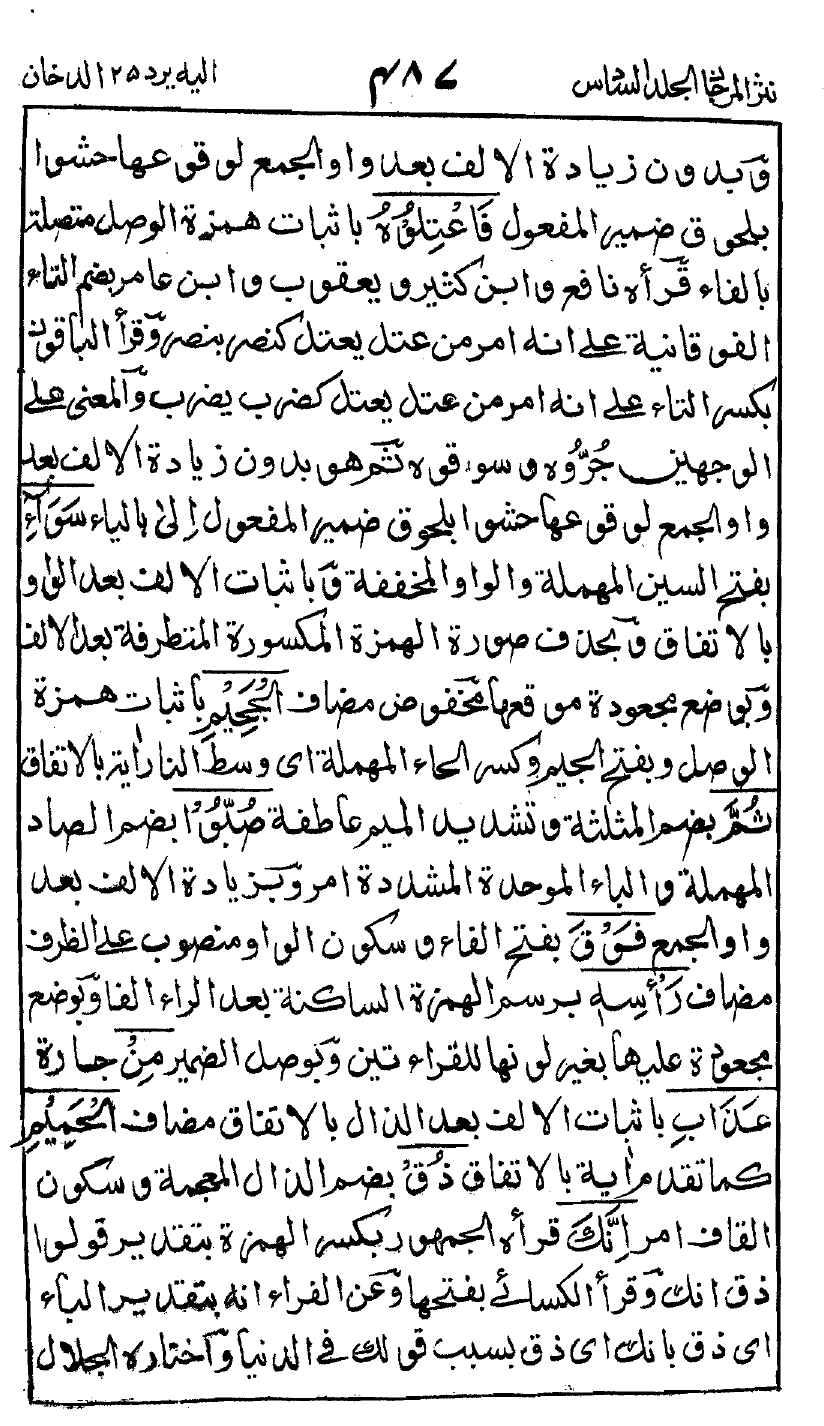 نثر المرجان الجلد السادس ۴۸۷ اليه يرد ۲۵ الدخان
وبدون زيادة الالف بعد واو الجمع لوقوعها حشوا
بلحوق ضمير المفعول فَاعْتِلُوْهُ باثبات همزة الوصل متصلة
بالفاء قرأه نافع وابن كثير ويعقوب وابن عامر بضم التاء
الفوقانية على انه امر من عتل يعتل كنصر ينصر وقرأ الباقون
بكسر التاء على انه امر من عتل يعتل كضرب يضرب والمعنى على
الوجهين جُرُّوْه وسوقوه ثم هو بدون زيادة الالف بعد
واو الجمع لوقوعها حشوا بلحوق ضمير المفعول اِلىٰ بالياء سَوَآءِ
بفتح السين المهملة والواو المخففة وباثبات الالف بعد الواو
بالاتفاق وبحذف صورة الهمزة المكسورة المتطرفة بعد الالف
وبوضع مجعودة موقعها مخفوض مضاف الْجَحِيْمِ باثبات همزة
الوصل وبفتح الجيم وكسر الحاء المهملة اى وسط النار اية بالاتفاق
ثُمَّ بضم المثلثة وتشديد الميم عاطفة صُبُّوْا بضم الصاد
المهملة والباء الموحدة المشددة امر وبزيادة الالف بعد
واو الجمع فَوْقَ بفتح الفاء وسكون الواو منصوب على الظرف
مضاف رَأْسِهٖ برسم الهمزة الساكنة بعد الراء الفا وبوضع
مجعودة عليها بغير لونها للقراءتين وبوصل الضمير مِنْ جارة
عَذَابِ باثبات الالف بعد الذال بالاتفاق مضاف الْحَمِيْمِ
كما تقدم اية بالاتفاق ذُقْ بضم الذال المعجمة وسكون
القاف امر اِنَّكَ قرأه الجمهور بكسر الهمزة بتقدير قولوا
ذق انك وقرأ الكسائے بفتحها وعن الفراء انه بتقدير الباء
اى ذق بانك اى ذق بسبب قولك فى الدنيا واختاره الجلال